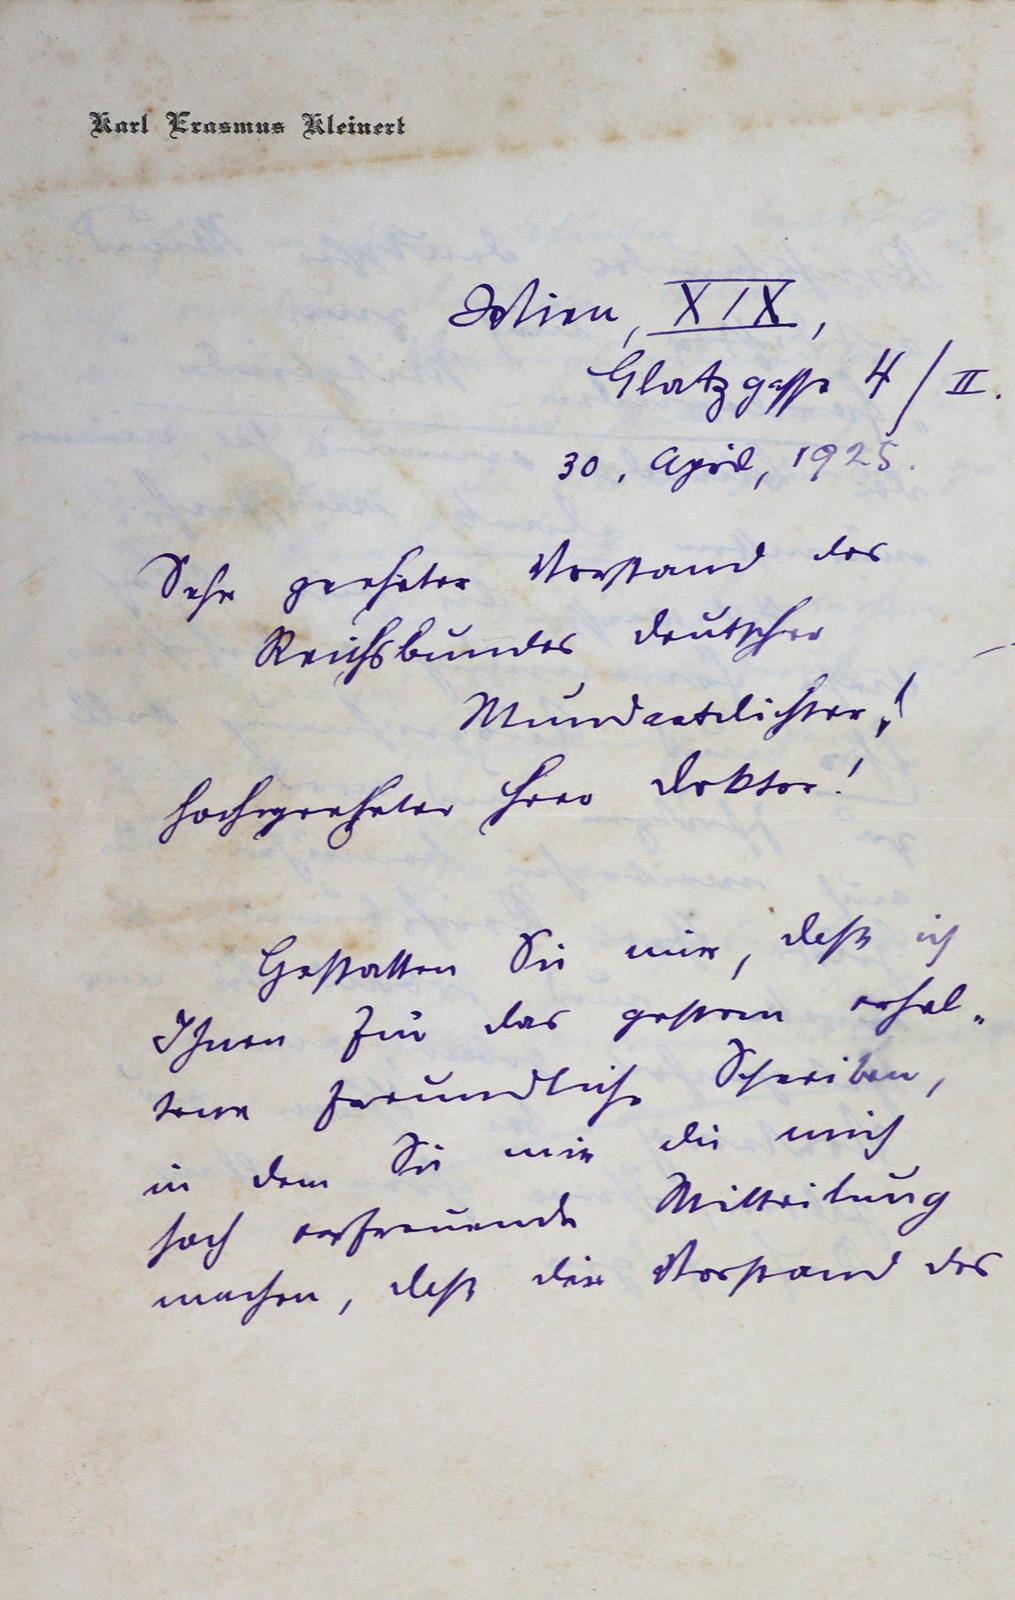 Karl Erasmus Kleinert
Wien, XIX,
Glatzgasse 4/II.
30. April, 1925.
Sehr geehrter Vorstand des
Reichsbundes deutscher
Mundartdichter!
Hochgeehrter Herr Doktor!
Gestatten Sie mir, daß ich
Ihnen für das gestern erhal-
tene freundliche Schreiben,
in dem Sie mir die mich
hoch erfreuende Mitteilung
machen, daß der Vorstand des